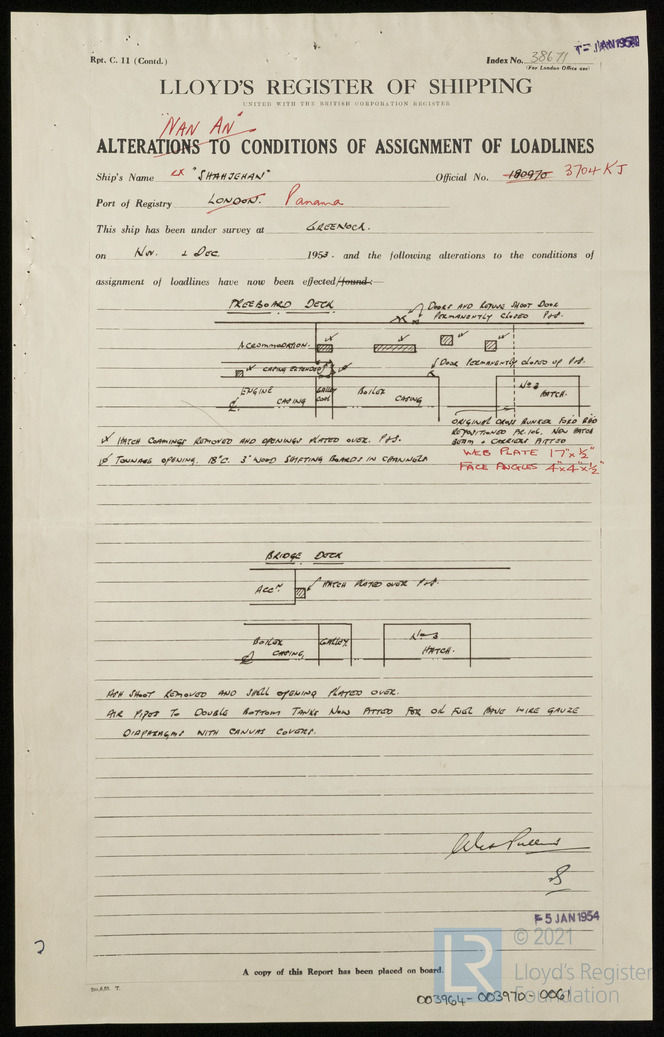 Rpt. C. 11 (Contd.)
Index No. 38671
(For London Office use)
LLOYD'S REGISTER OF SHIPPING
UNITED WITH THE BRITISH CORPORATION REGISTER
"NAN AN"
ALTERATIONS TO CONDITIONS OF ASSIGNMENT OF LOADLINES
Ship's Name ex "SHAHJEHAN" Official No. 180970 3704 KJ
Port of Registry LONDON. Panama
This ship has been under survey at GREENOCK.
on Nov. & DEC. 1953. and the following alterations to the conditions of
assignment of loadlines have now been effected/found:—
FREEBOARD DECK
DOORS AND REFUSE SHOOT DOOR
PERMANENTLY CLOSED P&S.
ACCOMMODATION.
DOOR PERMANENTLY CLOSED UP P&S.
CASING EXTENDED
ENGINE CASING
BOILER CASING
No 3 HATCH.
ORIGINAL CROSS BUNKER FORD BHD
REPOSITIONED FR. 106. NEW HATCH
BEAM & CARRIERS FITTED
WEB PLATE 17" x ½"
FACE ANGLES 4" x 4" x ½"
HATCH COAMINGS REMOVED AND OPENINGS PLATED OVER. P&S.
TONNAGE OPENING. 18" C. 3" WOOD SHIFTING BOARDS IN CHANNELS
BRIDGE DECK
ACCN.
HATCH PLATED OVER P&S.
BOILER CASING
GALLEY
No 3 HATCH.
ASH SHOOT REMOVED AND SHELL OPENING PLATED OVER.
AIR PIPES TO DOUBLE BOTTOM TANKS NOW FITTED FOR OIL FUEL HAVE WIRE GAUZE
DIAPHRAGMS WITH CANVAS COVERS.
5 JAN 1954
© 2021
LR
Lloyd's Register
Foundation
A copy of this Report has been placed on board.
003964-003970-0061
2